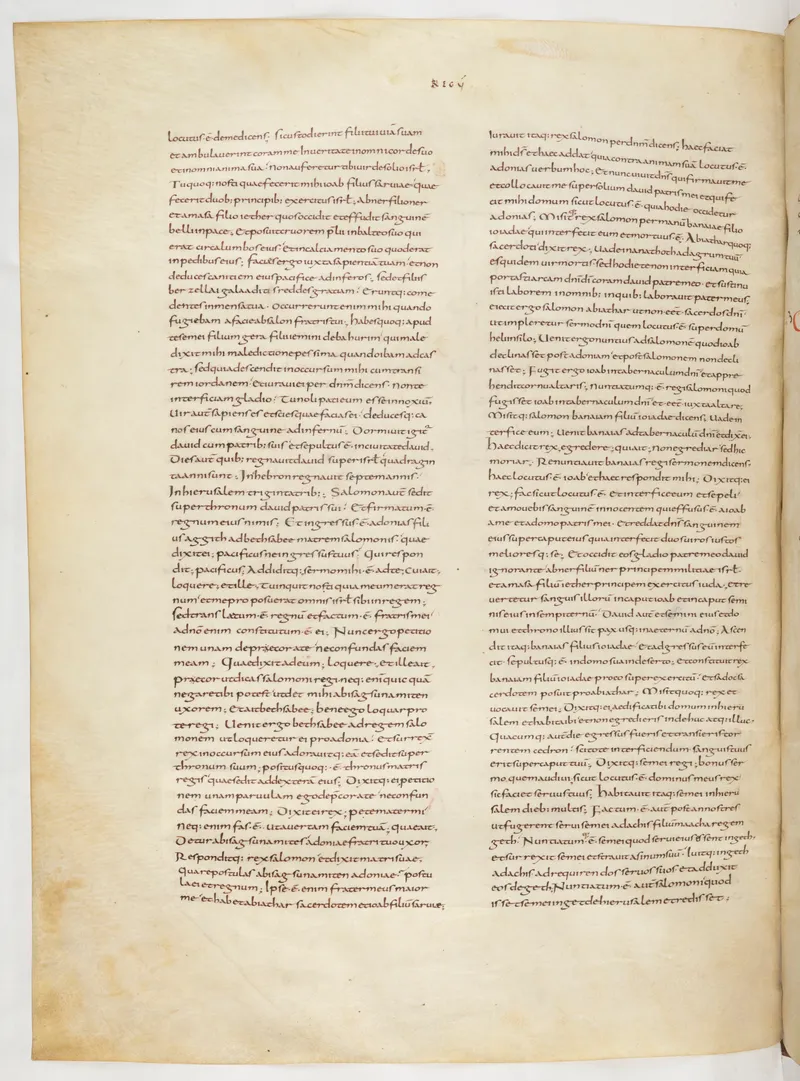 REGŪ
Locutus ē de me dicens; si custodierint filii tui uiā suam
et ambulauerint coram me In ueritate in omni corde suo
et in omni anima sua; non auferetur abi uir de solio isrl,
Tu quoq; nosti quae fecerit mihi ioab filius saruiae quae
fecerit duob; principib; exercitus isrl, Abner filio ner
et amasa filio iether quos occidit et effudit sanguinē
belli in pace; Et posuit cruorem plii in balteo suo qui
erat circa lumbos eius et in calciamento suo quod erat
in pedibus eius; facies ergo iuxta sapientiā tuam et non
deduces canitiem eius pacifice ad inferos; sed et filiis
berzellai galaaditis reddes gratiam; Eruntq; come
dentes in mensa tua. Occurrerunt enim mihi quando
fugiebam a facie absalon fratris tui, habes quoq; apud
te semei filium gera filii iemini de bahurim qui male
dixit mihi maledictione pessima quando ibam ad cas
tra; sed quia descendit in occursum mihi cum transi
rem iordanem et iuraui ei per dnm dicens; non te
interficiam gladio; Tu noli pati eum esse innoxiū
Uir aut sapiens es et scies quae facias ei, deducesq; ca
nos eius cum sanguine ad infernū; Dormiuit igit
dauid cum patrib; suis et sepultus ē in ciuitate dauid.
Dies aut quib; regnauit dauid super isrl quadragin
ta anni sunt; In hebron regnauit septem annis
In hierusalem triginta trib; Salomon aut sedit
super thronum dauid patris sui; Et firmatum ē
regnum eius nimis; Et ingressus ē adonias fili
us aggith ad bethsabee matrem salomonis quae
dixit ei; pacificusne ingressus tuus; Qui respon
dit; pacificus, Addiditq; sermo mihi ē ad te; Cui ait,
loquere, et ille; Tu inquit nosti quia meum erat reg
num et me proposuerat omnis isrl sibi in regem;
sed translatum ē regnū et factum ē fratris mei
A dno enim constitutum ē ei; Nunc ergo petitio
nem unam depraecor a te ne confundas faciem
meam; Quae dixit ad eum; loquere, et ille ait,
praecor ut dicas salomoni regi neq; enim quic quā
negare tibi potest ut det mihi abisag sunamiten
uxorem; Et ait bethsabee; bene ego loquar pro
te regi; Uenit ergo bethsabee ad regem salo
monem ut loqueretur ei pro adonia; et surrex
rex in occursum eius adorauitq; eā et sedit super
thronum suum; positusq; ē thronus matris
regis quae sedit ad dexterā eius; Dixitq; ei petitio
nem unam paruulam ego depcor a te ne confun
das faciem meam; Dixit ei rex; pete mater mi
neq; enim fas ē ut auertam faciem tuā; quae ait,
Detur abisag sunamites adoniae fratri tuo uxor;
Responditq; rex salomon et dixit matri suae,
quare postulas abisag sunamiten adoniae; postu
la ei et regnum; Ipse ē enim frater meus maior
me et habet abiathar sacerdotem et ioab filiū saruiae;
Iurauit itaq; rex salomon per dnm dicens; haec faciat
mihi ds et haec addat quia contra animam suā locutus ē
adonias uerbum hoc; Et nunc uiuit dns qui firmauit me
et collocauit me super solium dauid patris mei et qui fe
cit mihi domum sicut locutus ē quia hodie occidetur
adonias, Misitq rex salomon per manū banaiae filio
ioiadae qui interfecit eum et mortuus ē; Abiathar quoq;
sacerdoti dixit rex; Uade in anathoth ad agrum tuū
es quidem uir mortis sed hodie te non interficiam quia
portasti arcam dni di coram dauid patre meo et sustinu
isti laborem in omnib; in quib; laborauit pater meus;
eiecit ergo salomon abiathar ut non eēt sacerdos dni
ut impleretur sermo dni quem locutus ē super domū
heli in silo; Uenit ergo nuntius ad salomonē quod ioab
declinasset post adoniam et post salomonem non decli
nasset; Fugit ergo ioab in tabernaculum dni et appre
hendit cornu altaris, Nuntiatumq; ē regi salomoni quod
fugisset ioab in tabernaculum dni et eēt iuxta altare;
Misitq; salomon banaiam filiū ioiadae dicens; Uade in
terfice eum; Uenit banaias ad tabernaculū dni et dix ei.
Haec dicit rex, egredere; qui ait; non egrediar sed hic
moriar; Renuntiauit banaias regi sermonem dicens.
haec locutus ē ioab et haec respondit mihi; Dixitq; ei
rex; fac sicut locutus ē et interfice eum et sepeli
et amouebis sanguinē innocentem qui effusus ē a ioab
a me et a domo patris mei et reddat dns sanguinem
eius super caput eius quia interfecit duos uiros iustos
meliores q; se; Et occidit eos gladio patre meo dauid
ignorante abner filiū ner principem militiae isrl
et amasa filiū iether principem exercitus iuda, et re
uertetur sanguis illorū in caput ioab et in caput semi
nis eius in sempiternū; Dauid aut et semini eius et do
mui et throno illius sit pax usq; in aeternū a dno; Ascen
dit itaq; banaias filius ioiadae et adgressus eū interfe
cit sepultusq; ē in domo sua in deserto; et constituit rex
banaiam filiū ioiadae pro eo super exercitū et sadoc sa
cerdotem posuit pro abiathar; Misit quoq; rex et
uocauit semei; Dixitq; ei, aedifica tibi domum in hieru
salem et habita ibi et non egredieris inde huc atq; illuc.
Quacumq; aut die egressus fueris et transieris tor
rentem cedron scito te interficiendum sanguis tuus
erit super caput tuū, Dixitq; semei regi; bonus ser
mo, quemadmodū sicut locutus ē dominus meus rex
sic faciet seruus tuus; habitauit itaq; semei in hieru
salem dieb; multis; Factum ē aut post annos tres
ut fugerent serui semei ad achis filiū maacha regem
geth; Nuntiatum ē semei quod serui eius essent in geth.
et surrexit semei et strauit asinum suū. Iuitq; in geth
ad achis ad requirendos seruos suos et adduxit
eos de geth; Nuntiatum ē aut salomoni quod
isset semei in geth de hierusalem et redisset;